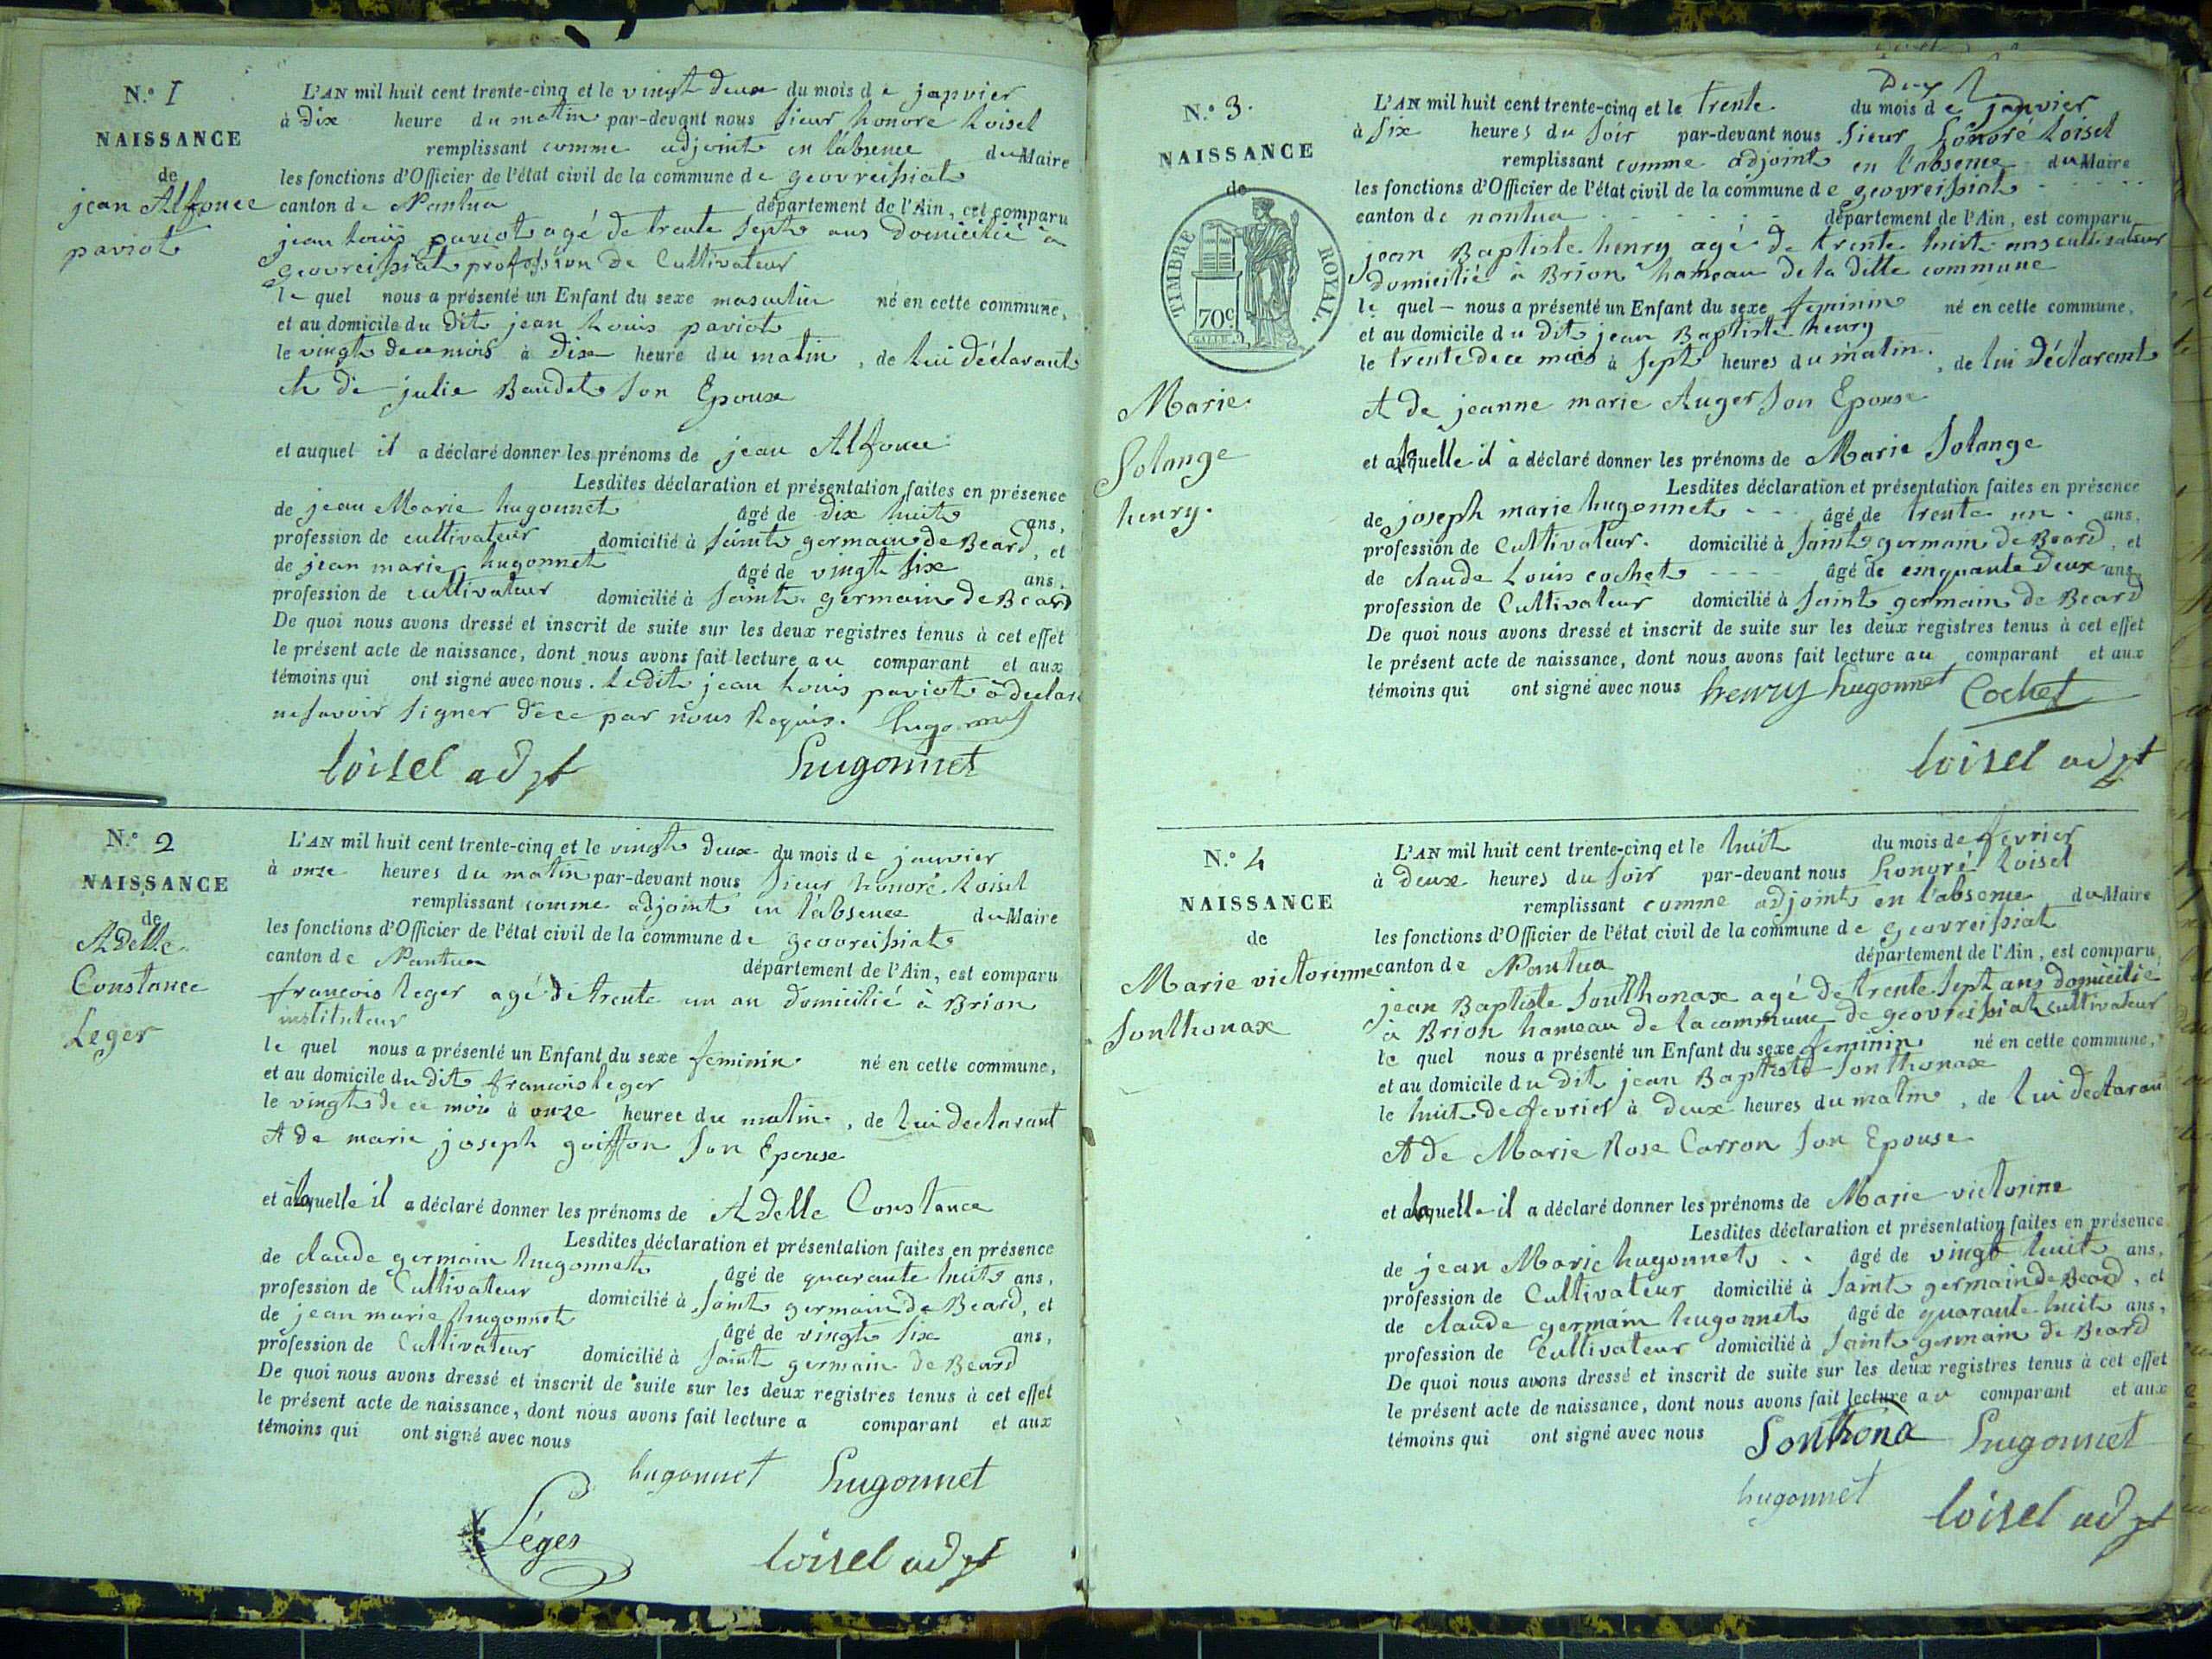 N.º 1
NAISSANCE
de
jean Alfonce
paviot
L'AN mil huit cent trente-cinq et le vingt deux du mois de janvier
à dix heure du matin par-devant nous sieur honoré Loisel
remplissant comme adjoint en l'absence du Maire
les fonctions d'Officier de l'état civil de la commune de geovreissiat
canton de Nantua département de l'Ain, est comparu
jean Louis paviot agé de trente sept ans domicilié à
geovreissiat profession de Cultivateur
le quel nous a présenté un Enfant du sexe masculin né en cette commune,
et au domicile du dit jean Louis paviot
le vingt de ce mois à dix heure du matin, de lui déclarant
et de julie Baudet son Epouse
et auquel il a déclaré donner les prénoms de jean Alfonce
Lesdites déclaration et présentation faites en présence
de jean Marie hugonnet âgé de dix huit ans,
profession de cultivateur domicilié à saint germain de Beard, et
de jean marie hugonnet âgé de vingt six ans,
profession de cultivateur domicilié à saint germain de Beard
De quoi nous avons dressé et inscrit de suite sur les deux registres tenus à cet effet
le présent acte de naissance, dont nous avons fait lecture au comparant et aux
témoins qui ont signé avec nous. Le dit jean Louis paviot à declaré
ne savoir signer de ce par nous Requis. hugonnet
loisel adjt hugonnet
N.º 2
NAISSANCE
de
Adelle
Constance
Leger
L'AN mil huit cent trente-cinq et le vingt deux du mois de janvier
à onze heures du matin par-devant nous sieur honoré Loisel
remplissant comme adjoint en l'absence du Maire
les fonctions d'Officier de l'état civil de la commune de geovreissiat
canton de Nantua département de l'Ain, est comparu
francois leger agé de trente un an domicilié à Brion
instituteur
le quel nous a présenté un Enfant du sexe feminin né en cette commune,
et au domicile du dit francois leger
le vingt de ce mois à onze heures du matin, de lui declarant
et de marie joseph goiffon son Epouse
et àlaquelle il a déclaré donner les prénoms de Adelle Constance
Lesdites déclaration et présentation faites en présence
de claude germain hugonnet âgé de quarante huit ans,
profession de Cultivateur domicilié à saint germain de Beard, et
de jean marie hugonnet âgé de vingt six ans,
profession de Cultivateur domicilié à saint germain de Beard
De quoi nous avons dressé et inscrit de suite sur les deux registres tenus à cet effet
le présent acte de naissance, dont nous avons fait lecture a comparant et aux
témoins qui ont signé avec nous
hugonnet hugonnet
Léger loisel adjt
N.º 3.
NAISSANCE
de
TIMBRE ROYAL.
70c
Marie
Solange
henry.
L'AN mil huit cent trente-cinq et le trente du mois de janvier
à six heures du soir par-devant nous sieur honoré Loisel
remplissant comme adjoint en l'absence du Maire
les fonctions d'Officier de l'état civil de la commune de geovreissiat
canton de nantua département de l'Ain, est comparu
jean Baptiste henry agé de trente huit ans cultivateur
domicilié à Brion hameau de la ditte commune
le quel nous a présenté un Enfant du sexe feminin né en cette commune,
et au domicile du dit jean Baptiste henry
le trente de ce mois à sept heures du matin, de lui déclarant
et de jeanne marie Auger son Epouse
et alaquelle il à déclaré donner les prénoms de Marie Solange
Lesdites déclaration et présentation faites en présence
de joseph marie hugonnet âgé de trente un ans,
profession de Cultivateur. domicilié à saint germain de Beard, et
de claude Louis cochet âgé de cinquante deux ans,
profession de Cultivateur domicilié à saint germain de Beard
De quoi nous avons dressé et inscrit de suite sur les deux registres tenus à cet effet
le présent acte de naissance, dont nous avons fait lecture au comparant et aux
témoins qui ont signé avec nous henry hugonnet Cochet
loisel adjt
N.º 4
NAISSANCE
de
Marie victorinne
Sonthonax
L'AN mil huit cent trente-cinq et le huit du mois de fevrier
à deux heures du soir par-devant nous honoré Loisel
remplissant comme adjoint en l'absence du Maire
les fonctions d'Officier de l'état civil de la commune de geovreissiat
canton de Nantua département de l'Ain, est comparu
jean Baptiste Sonthonax agé de trente sept ans domicilié
à Brion hameau de la commune de geovreissiat cultivateur
le quel nous a présenté un Enfant du sexe feminin né en cette commune,
et au domicile du dit jean Baptiste Sonthonax
le huit de fevrier à deux heures du matin, de lui declarant
et de Marie Rose Carron son Epouse
et alaquelle il a déclaré donner les prénoms de Marie victorine
Lesdites déclaration et présentation faites en présence
de jean Marie hugonnet âgé de vingt huit ans,
profession de Cultivateur domicilié à saint germain de Beard, et
de claude germain hugonnet âgé de quarante huit ans,
profession de Cultivateur domicilié à saint germain de Beard
De quoi nous avons dressé et inscrit de suite sur les deux registres tenus à cet effet
le présent acte de naissance, dont nous avons fait lecture au comparant et aux
témoins qui ont signé avec nous Sonthona hugonnet
hugonnet loisel adjt